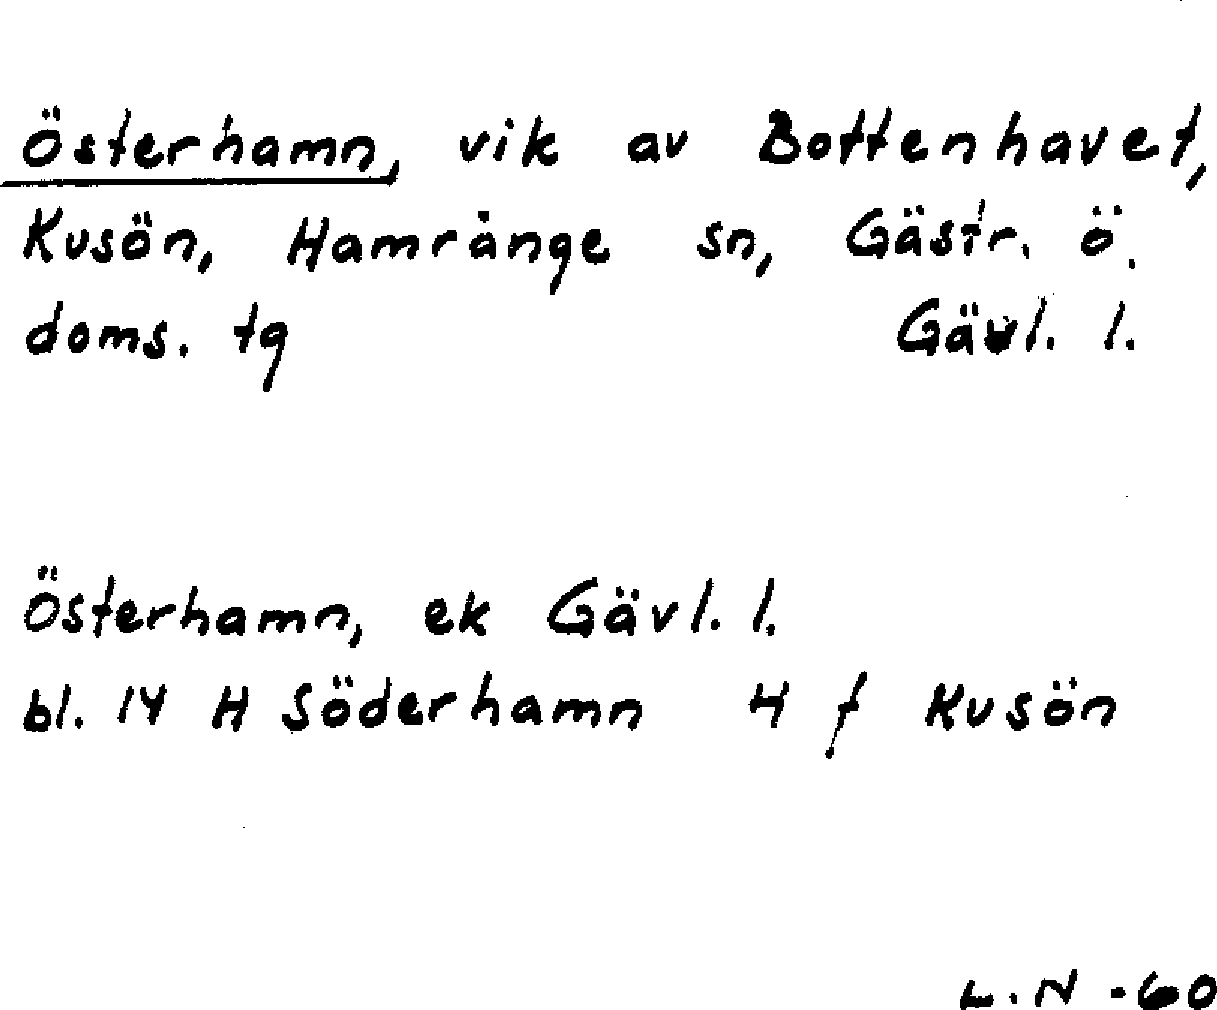 Österhamn, vik av Bottenhavet,
Kusön, Hamrånge sn, Gästr. ö.
doms. tg Gävl. l.
Österhamn, ek Gävl. l.
bl. 14 H Söderhamn 4 f Kusön
L.N -60